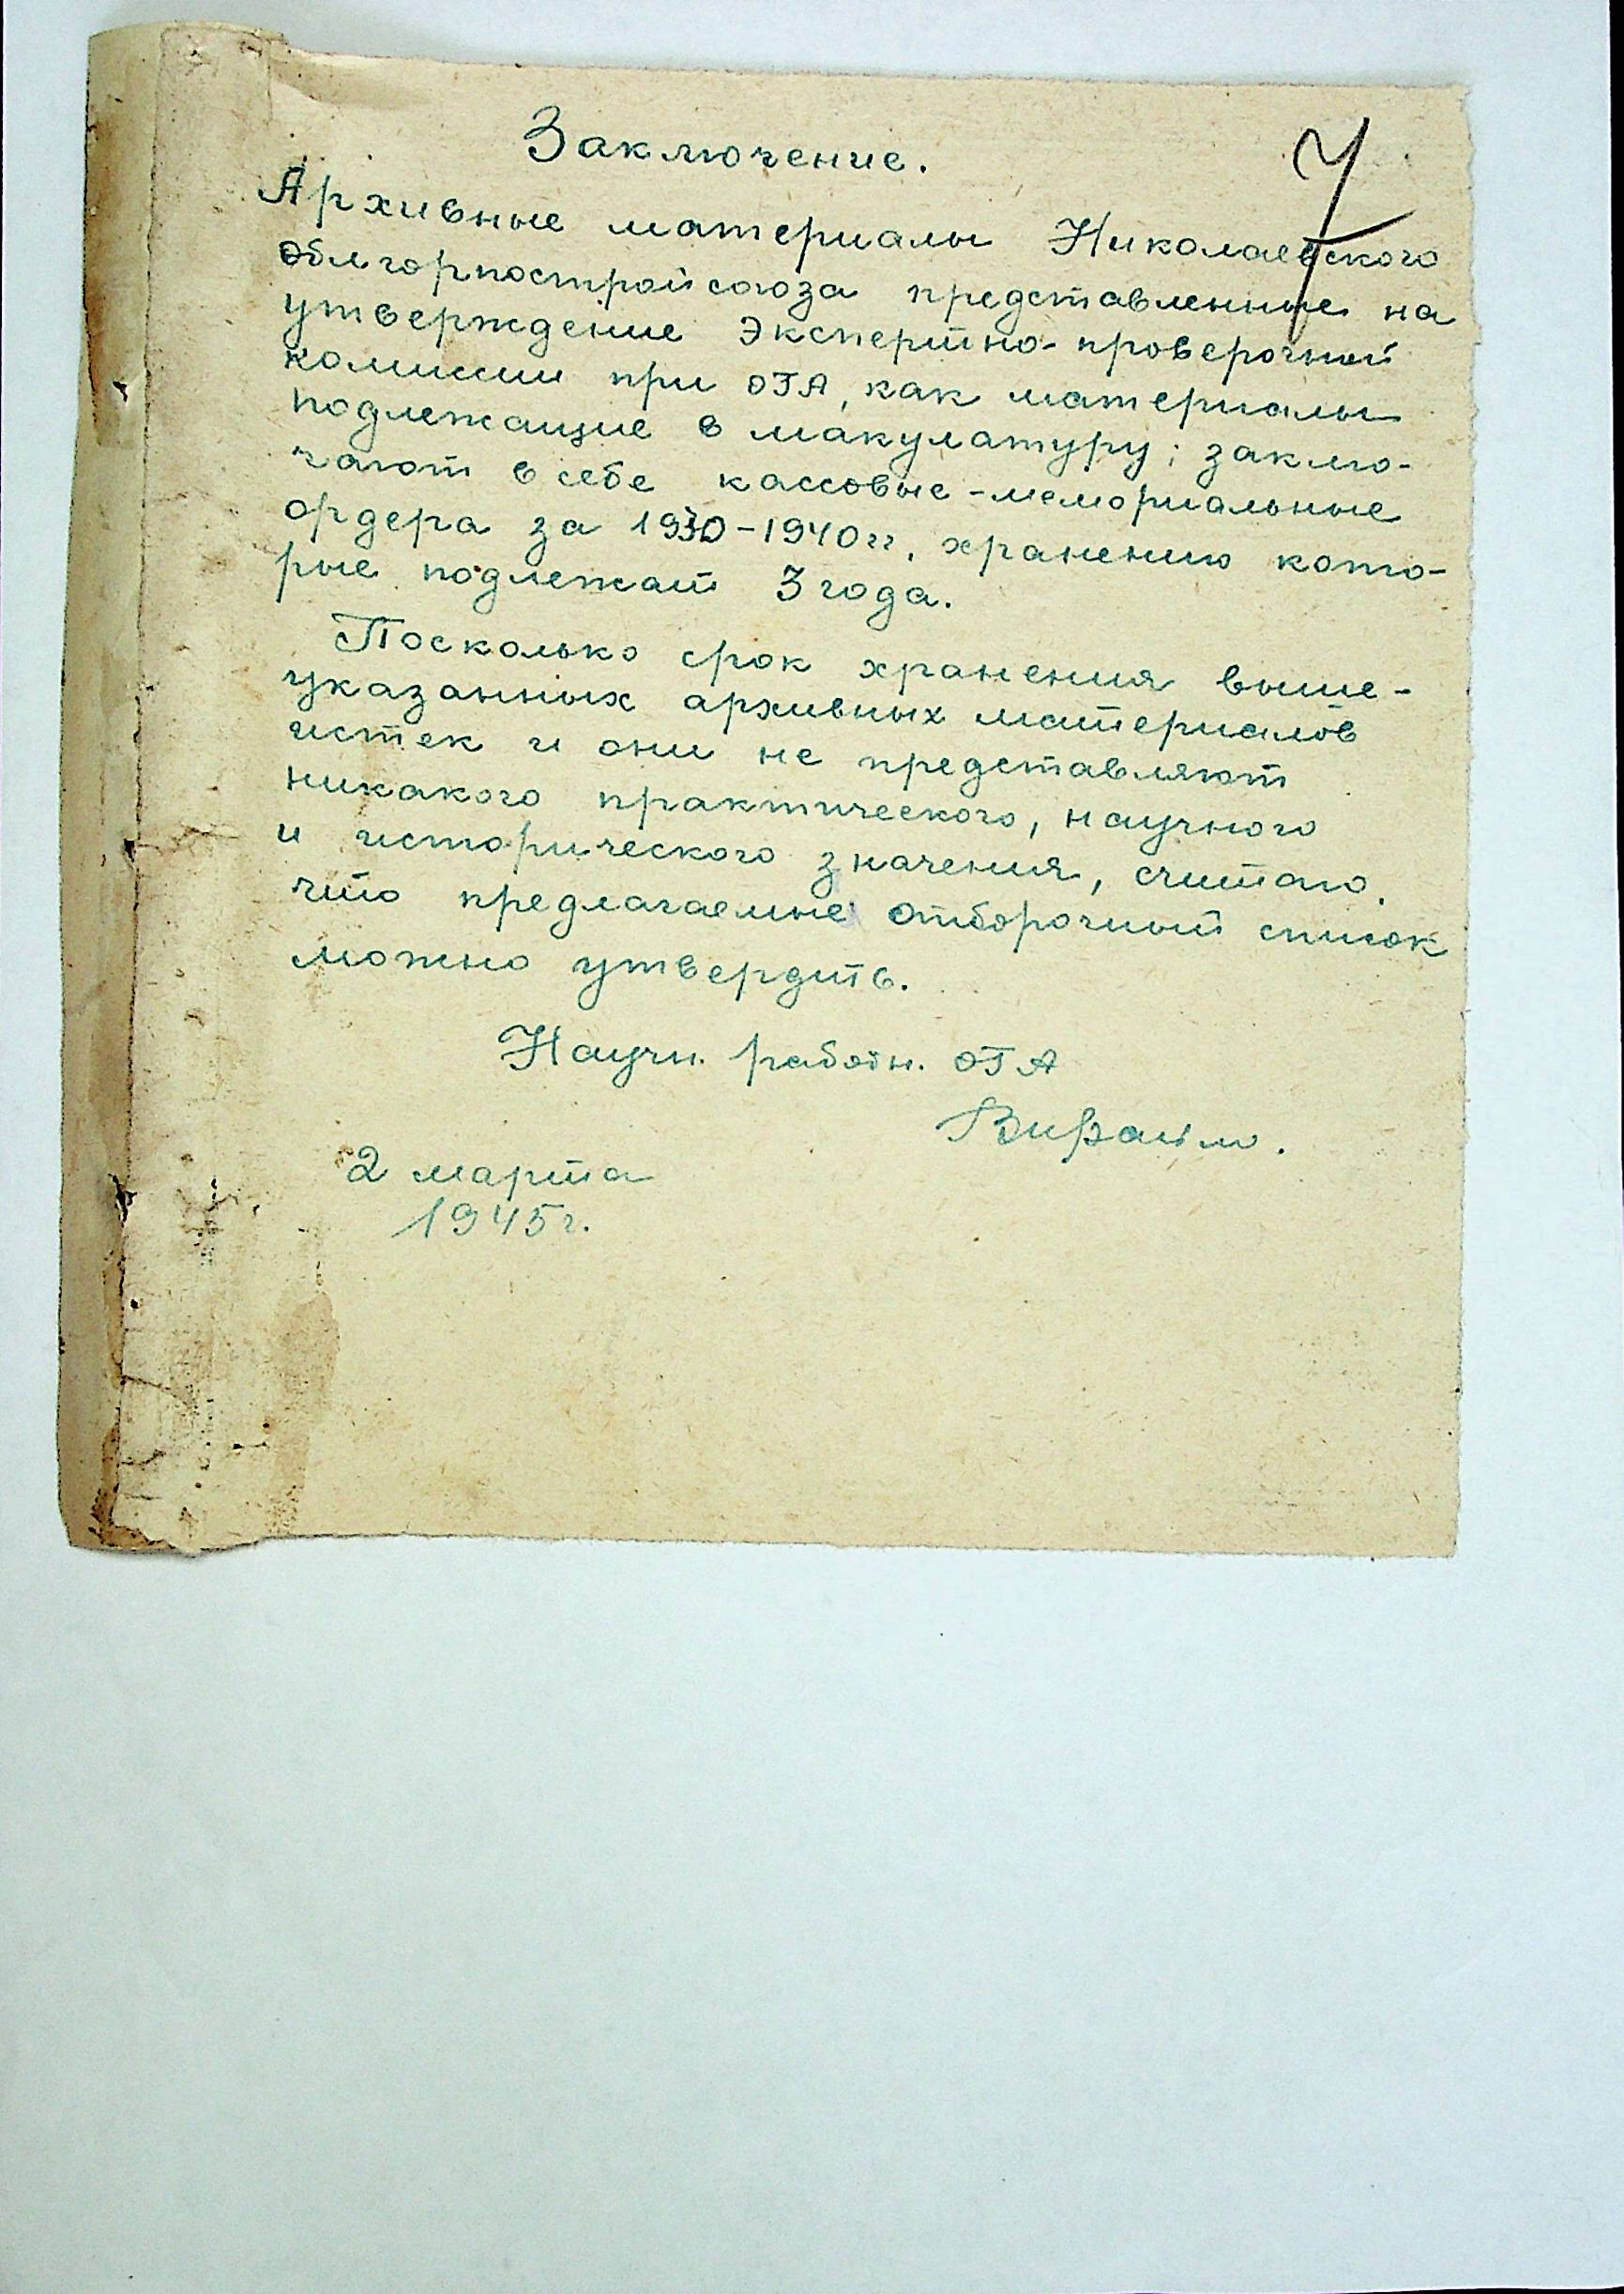 Заключение.
7
Архивные материалы Николаевского
Облгорпостройсоюза представленные на
утверждение Экспертно-проверочной
комиссии при ОГА, как материалы
подлежащие в макулатуру; заклю-
чают в себе кассовые-мемориальные
ордера за 1930-1940 гг. хранению кото-
рые подлежат 3 года.
Посколько срок хранения выше-
указанных архивных материалов
истек и они не представляют
никакого практического, научного
и исторического значения, считаю,
что предлагаемые отборочный список
можно утвердить.
Научн. работн. ОГА
2 марта
1945 г.